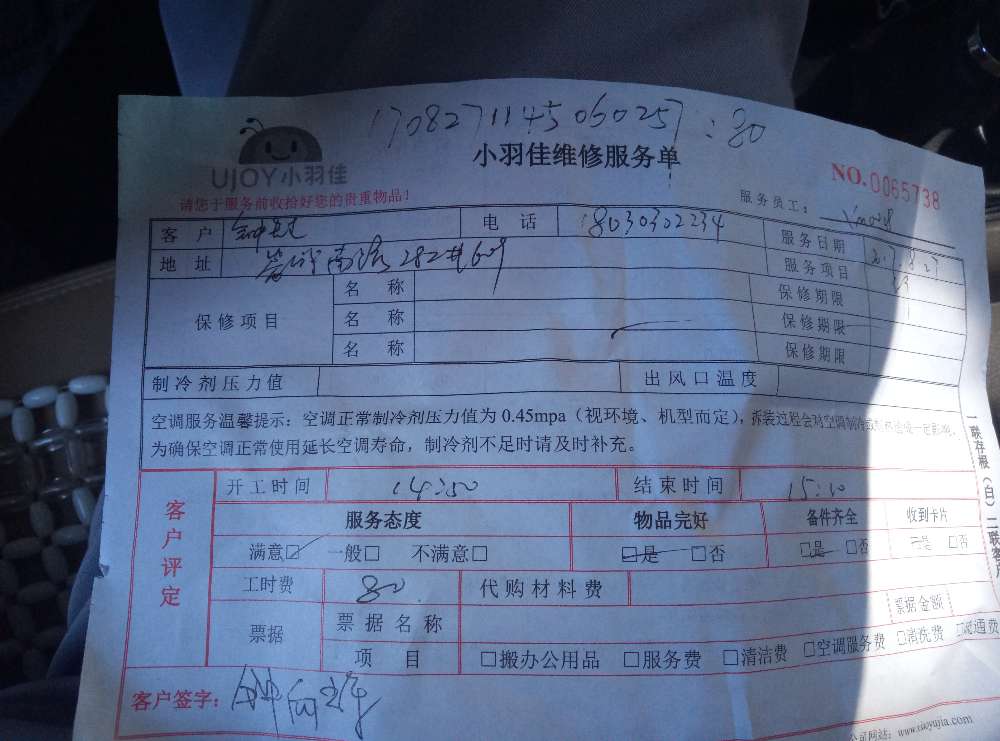 170827114506 0257:80
UJOY小羽佳
小羽佳维修服务单
NO.0065738
请您于服务前收拾好您的贵重物品!
服务员工:
客 户 电 话 18030302234 服务日期
地 址 南路282#609 服务项目
保修项目 名 称 保修期限
名 称 保修期限
名 称 保修期限
制冷剂压力值 出风口温度
空调服务温馨提示:空调正常制冷剂压力值为 0.45mpa(视环境、机型而定),拆装过程会对空调制冷
为确保空调正常使用延长空调寿命,制冷剂不足时请及时补充。
客户评定
开工时间 14:50 结束时间 15:10
服务态度 物品完好 备件齐全 收到卡片
满意☑ 一般□ 不满意□ □是 □否 □是 □否 □是 □否
工时费 80 代购材料费
票据 票据名称 票据金额
项 目 □搬办公用品 □服务费 □清洁费 □空调服务费 □清洗费 □疏通费
客户签字:
公司网站:www.xiaoyujia.com
一联存根(白)二联客户